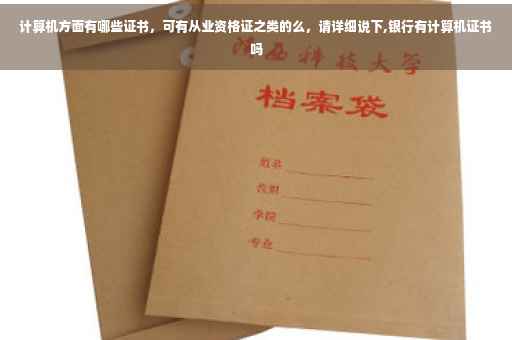 计算机方面有哪些证书，可有从业资格证之类的么，请详细说下,银行有计算机证书
吗
陕西科技大学
档案袋
姓名
学院
专业